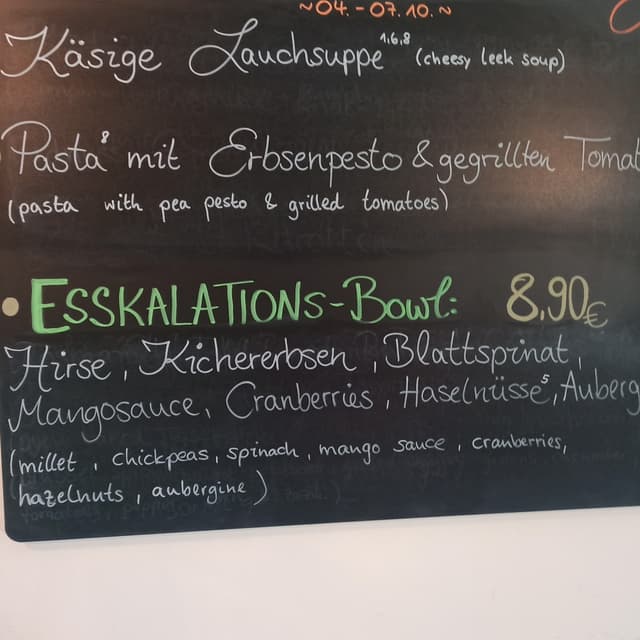 ~04. - 07.10.~
Käsige Lauchsuppe 1,6,8 (cheesy leek soup)
Pasta 8 mit Erbsenpesto & gegrillten Tomat
(pasta with pea pesto & grilled tomatoes)
• ESSKALATIONS-Bowl: 8,90€
Hirse, Kichererbsen, Blattspinat,
Mangosauce, Cranberries, Haselnüsse 5, Auberg
(millet, chickpeas, spinach, mango sauce, cranberries,
hazelnuts, aubergine)